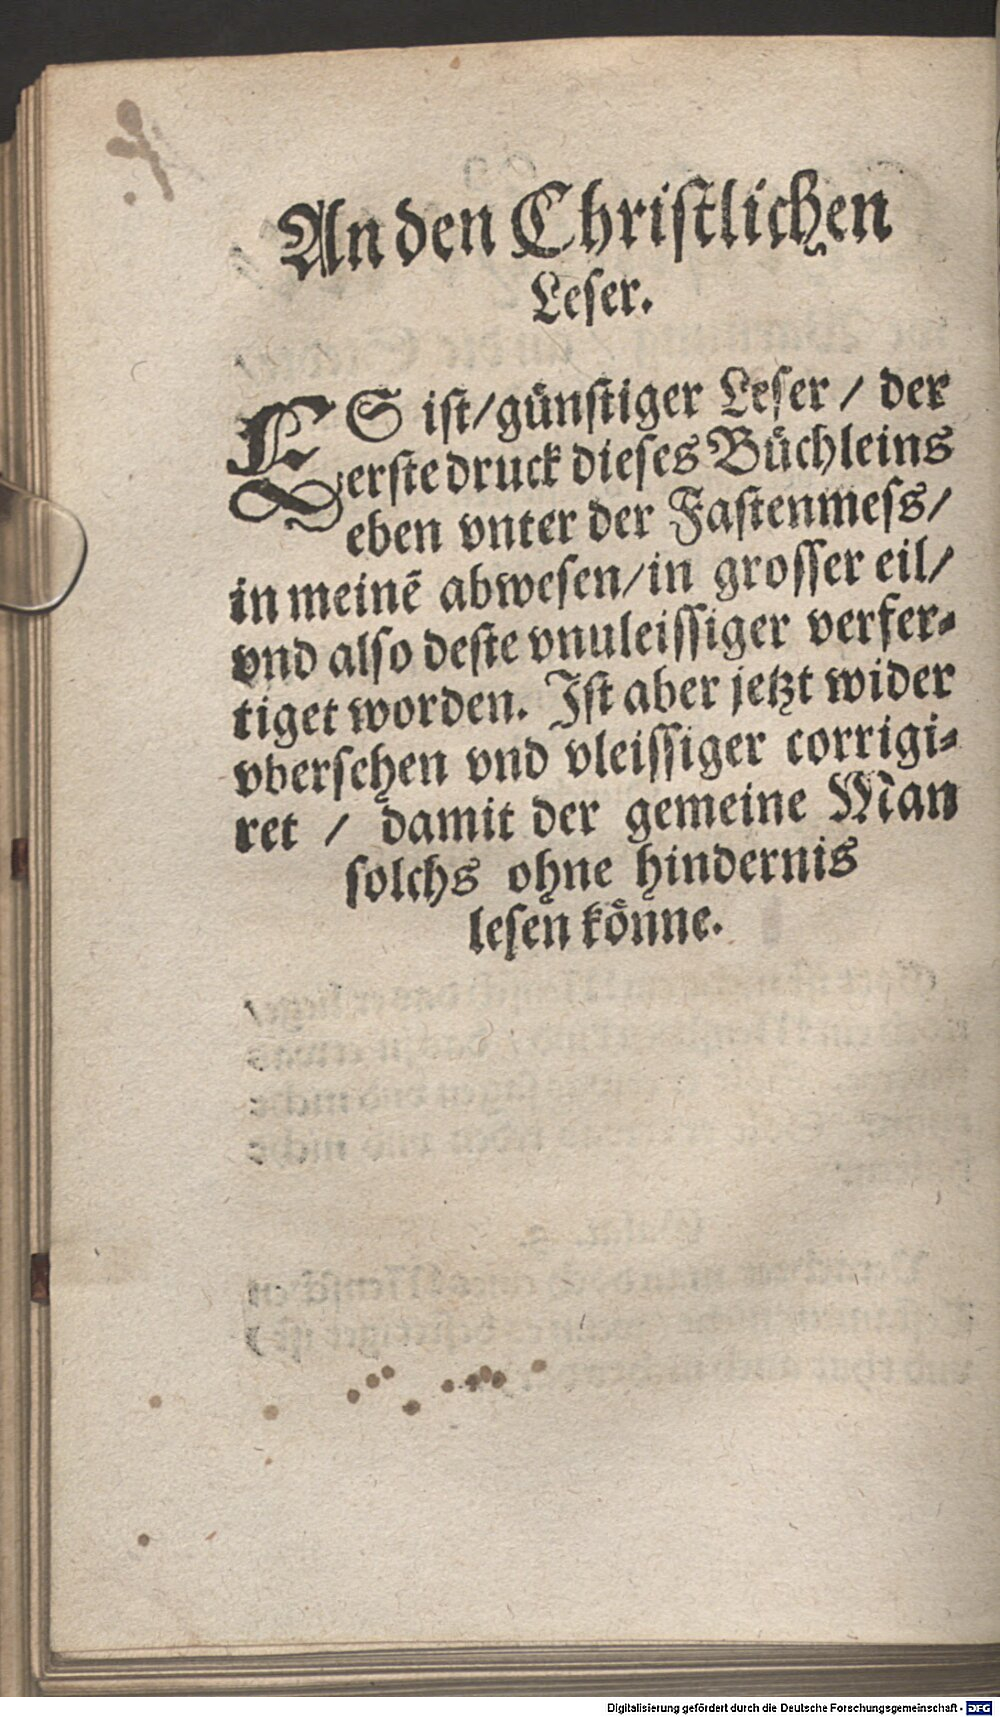 An den Chriſtlichen
Leſer.
ES iſt/günſtiger Leſer / der
erſte druck dieſes Büchleins
eben vnter der Faſtenmeſs/
in meinē abweſen/in groſſer eil/
vnd alſo deſte vnuleiſſiger verfer⸗
tiget worden. Iſt aber jetzt wider
vberſehen vnd vleiſſiger corrigi⸗
ret / damit der gemeine Man
ſolchs ohne hindernis
leſen könne.
Digitalisierung gefördert durch die Deutsche Forschungsgemeinschaft - DFG